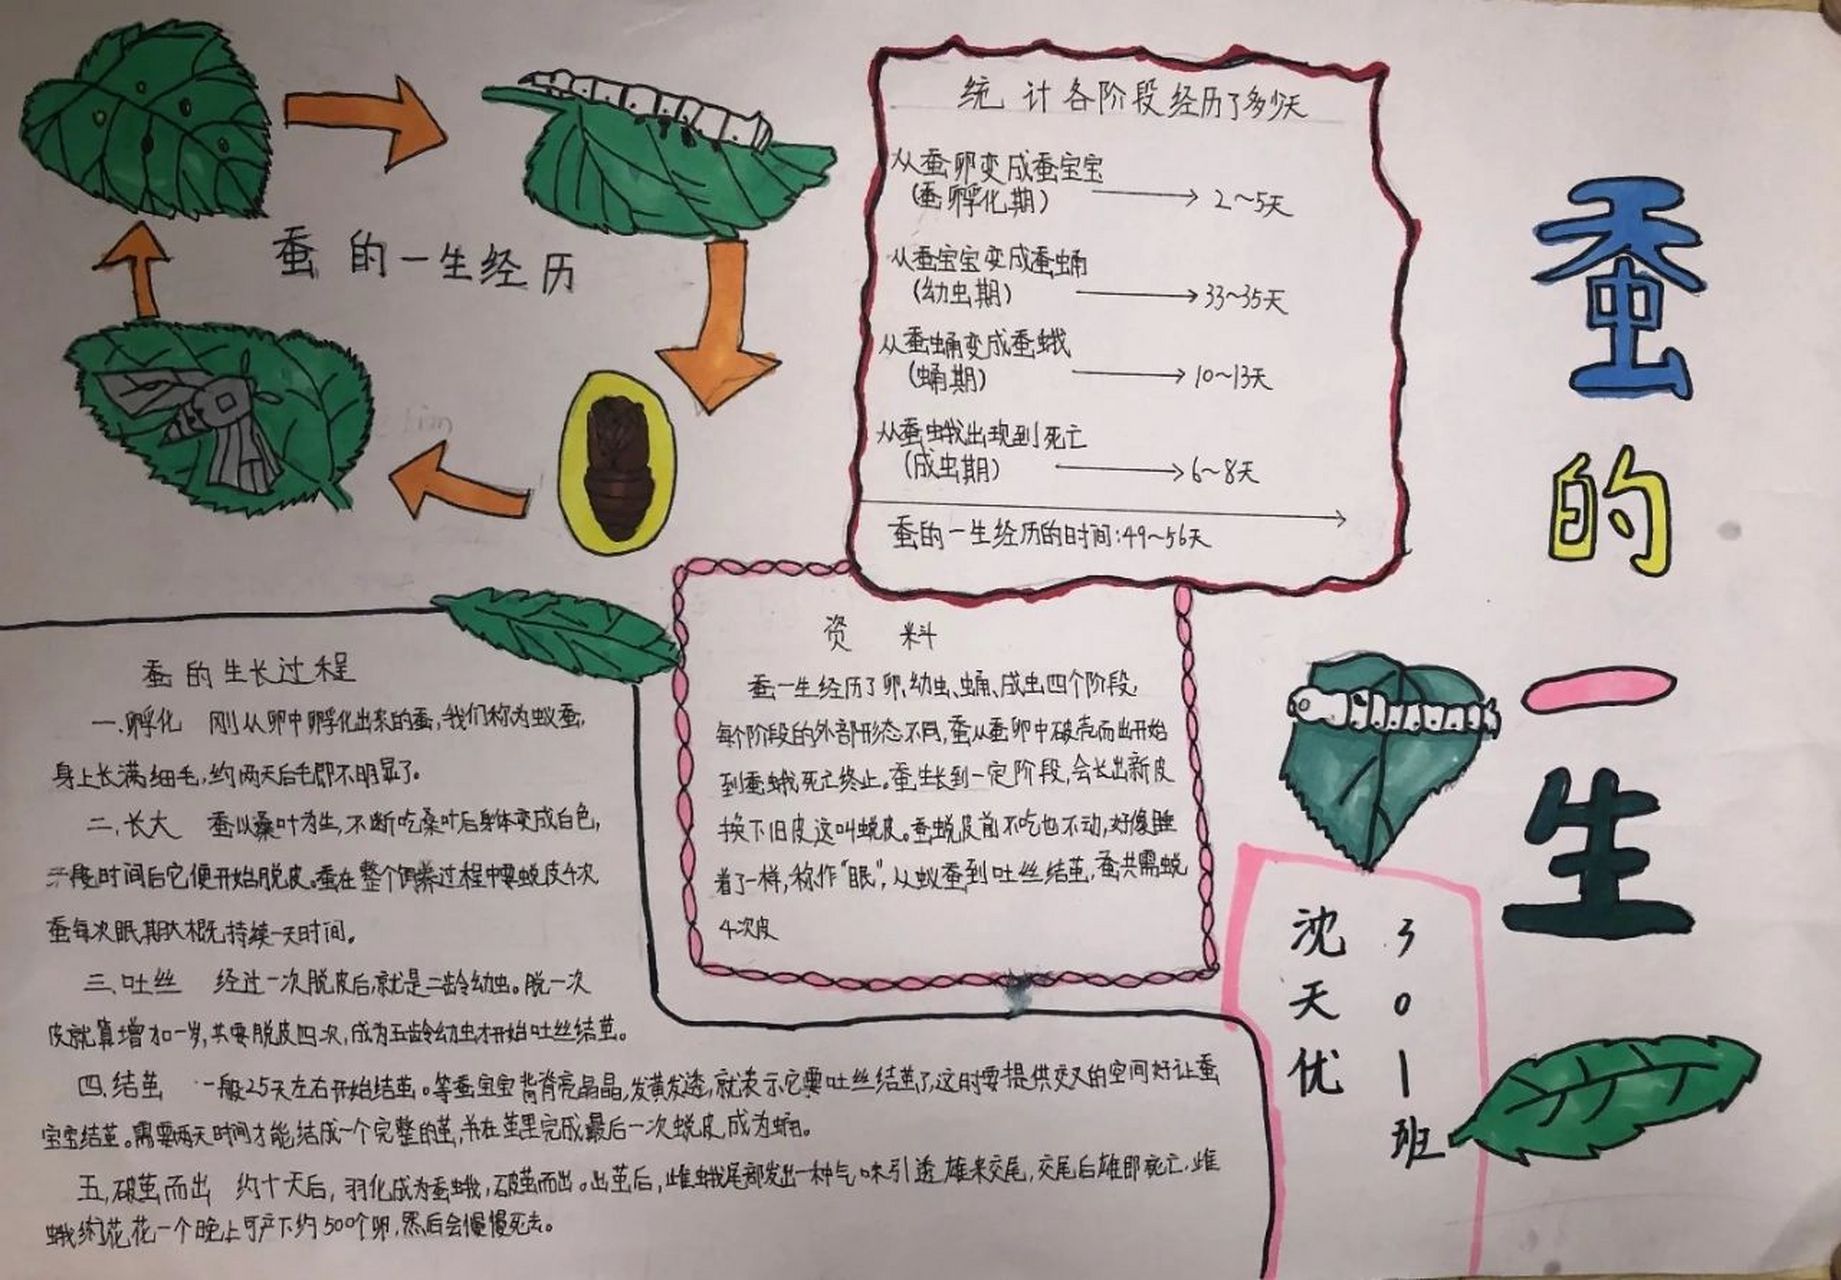 蚕的一生
蚕的一生经历
统计各阶段经历了多少天
从蚕卵变成蚕宝宝
(蚕孵化期) 2~5天
从蚕宝宝变成蚕蛹
(幼虫期) 33~35天
从蚕蛹变成蚕蛾
(蛹期) 10~13天
从蚕蛾出现到死亡
(成虫期) 6~8天
蚕的一生经历的时间:49~56天
资 料
蚕一生经历了卵、幼虫、蛹、成虫四个阶段,
每个阶段的外部形态不同,蚕从蚕卵中破壳而出开始
到蚕蛾死亡终止。蚕生长到一定阶段,会长出新皮
换下旧皮这叫蜕皮。蚕蜕皮前不吃也不动,好像睡
着了一样,称作“眠”,从蚁蚕到吐丝结茧,蚕共需蜕
4次皮
蚕的生长过程
一.孵化 刚从卵中孵化出来的蚕,我们称为蚁蚕,
身上长满细毛,约两天后毛即不明显了。
二.长大 蚕以桑叶为生,不断吃桑叶后身体变成白色,
一段时间后它便开始脱皮。蚕在整个饲养过程中要蜕皮4次
蚕每次眠期大概持续一天时间。
三.吐丝 经过一次脱皮后,就是二龄幼虫。脱一次
皮就算增加一岁,共要脱皮四次,成为五龄幼虫才开始吐丝结茧。
四.结茧 一般25天左右开始结茧。等蚕宝宝背脊亮晶晶,发黄发透,就表示它要吐丝结茧了,这时要提供交叉的空间好让蚕
宝宝结茧。需要两天时间才能结成一个完整的茧,并在茧里完成最后一次蜕皮,成为蛹。
五,破茧而出 约十天后,羽化成为蚕蛾,破茧而出。出茧后,雌蛾尾部发出一种气味引透雄来交尾,交尾后雄即死亡,雌
蛾约花花一个晚上可产下约500个卵,然后会慢慢死去。
301班
沈天优